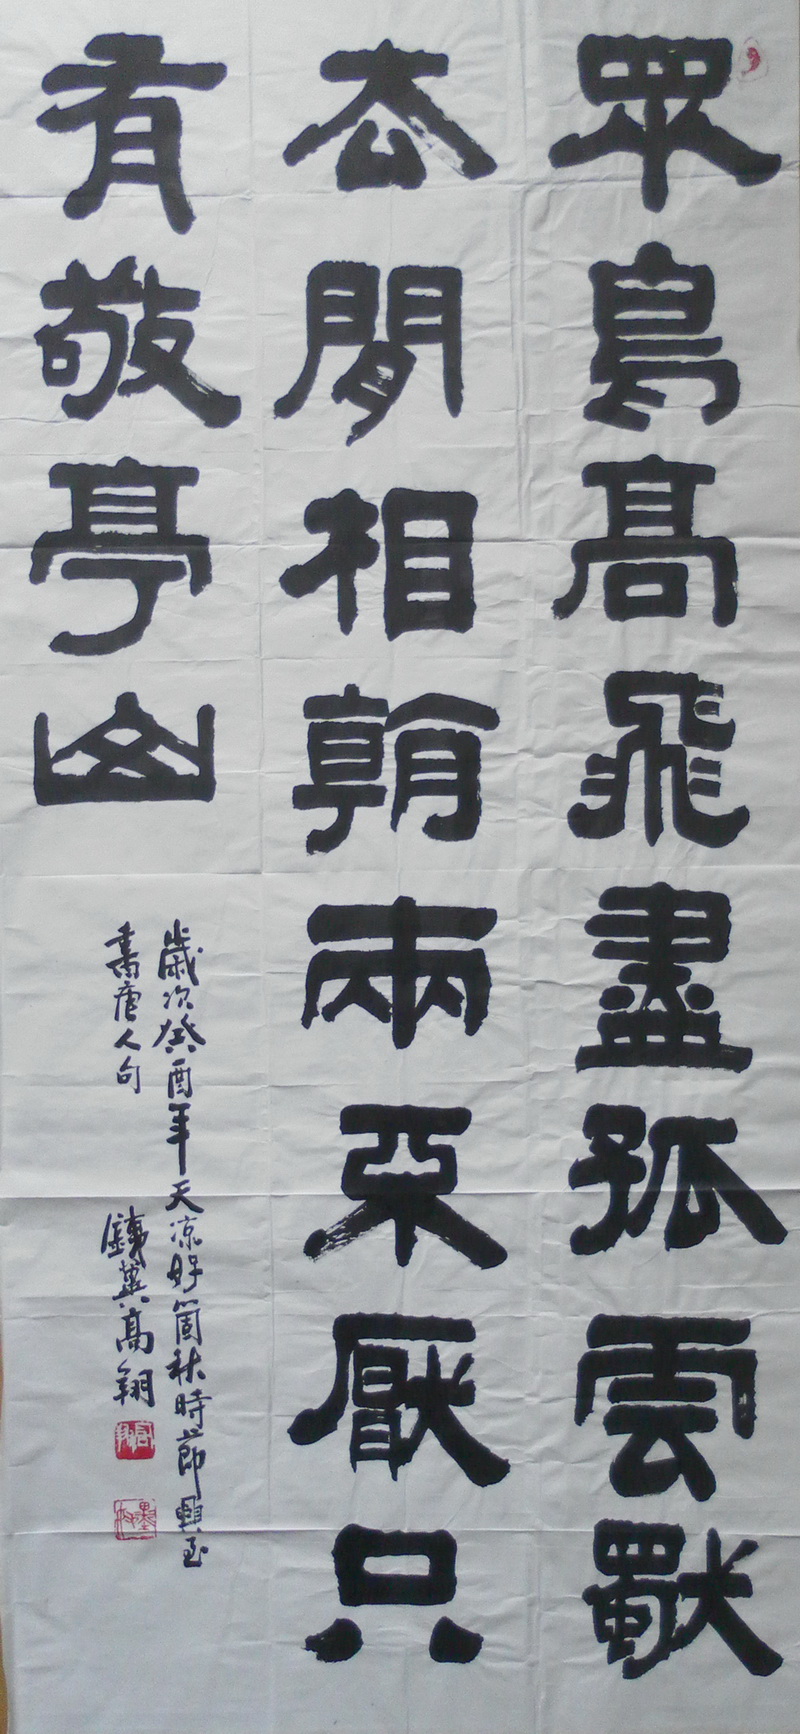 眾鳥高飛盡孤雲獨
去閒相朝兩不厭只
有敬亭山
歲次癸酉年天凉好箇秋時節興至
書唐人句 鐵翼高翔